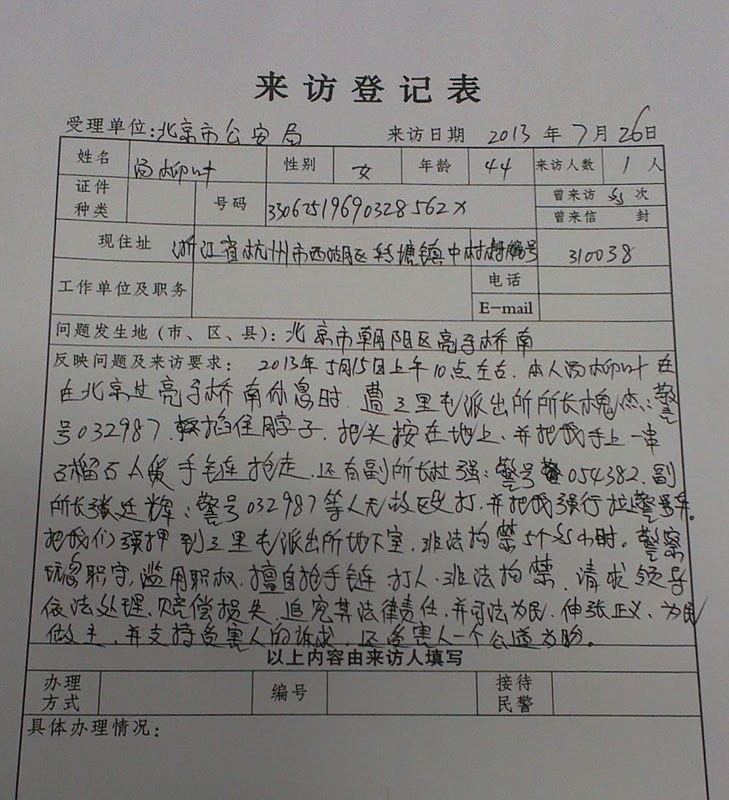 来访登记表
受理单位:北京市公安局 来访日期 2013 年 7 月 26 日
姓名 汤柳叶 性别 女 年龄 44 来访人数 1 人
证件种类 号码 33062519690328562X 曾来访 次
曾来信 封
现住址 浙江省杭州市西湖区转塘镇中村 号 310038
工作单位及职务 电话
E-mail
问题发生地（市、区、县）：北京市朝阳区亮子桥南
反映问题及来访要求： 2013年5月15日上午10点左右,本人汤柳叶在
在北京过亮子桥南休息时,遭三里屯派出所所长 杰:警
号032987 掐住脖子,把头按在地上,并把我手上一串
石榴石 手链抢走,还有副所长杜强:警号054382,副
所长张廷辉:警号032987等人无故殴打,并把我强行拉 警车,
把我们强押到三里屯派出所地下室,非法拘禁5个 小时。警察
职守,滥用职权,擅自抢手链打人,非法拘禁,请求领导
依法处理,赔偿损失,追究其法律责任,并司法为民,伸张正义,为民
做主,并支持受害人的诉求,还受害人一个公道为盼。
以上内容由来访人填写
办理方式 编号 接待民警
具体办理情况：